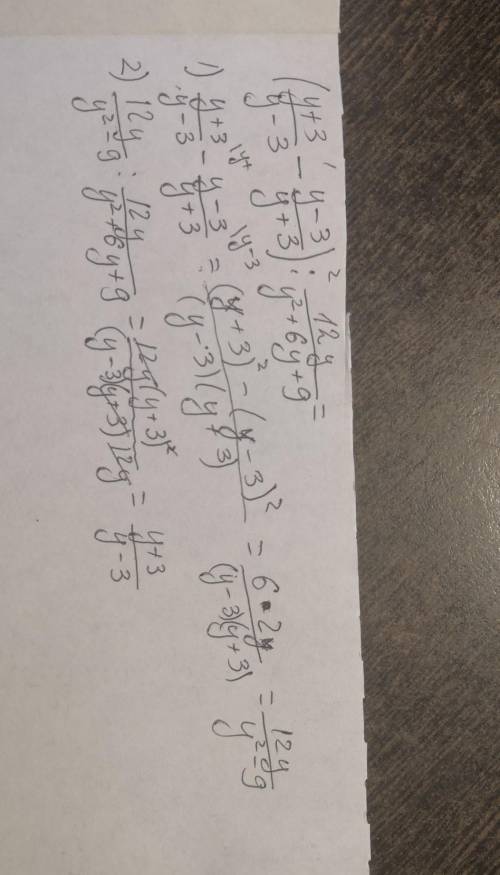 ((y+3)/(y-3) - (y-3)/(y+3))² : 12y/(y²+6y+9) =
1) (y+3)/(y-3) \y+ - (y-3)/(y+3) \y-3 = ((y+3)² - (y-3)²)/((y-3)(y+3)) = 6·2y/((y-3)(y+3)) = 12y/(y²-9)
2) 12y/(y²-9) : 12y/(y²+6y+9) = 12y(y+3)²/((y-3)(y+3)12y) = (y+3)/(y-3)